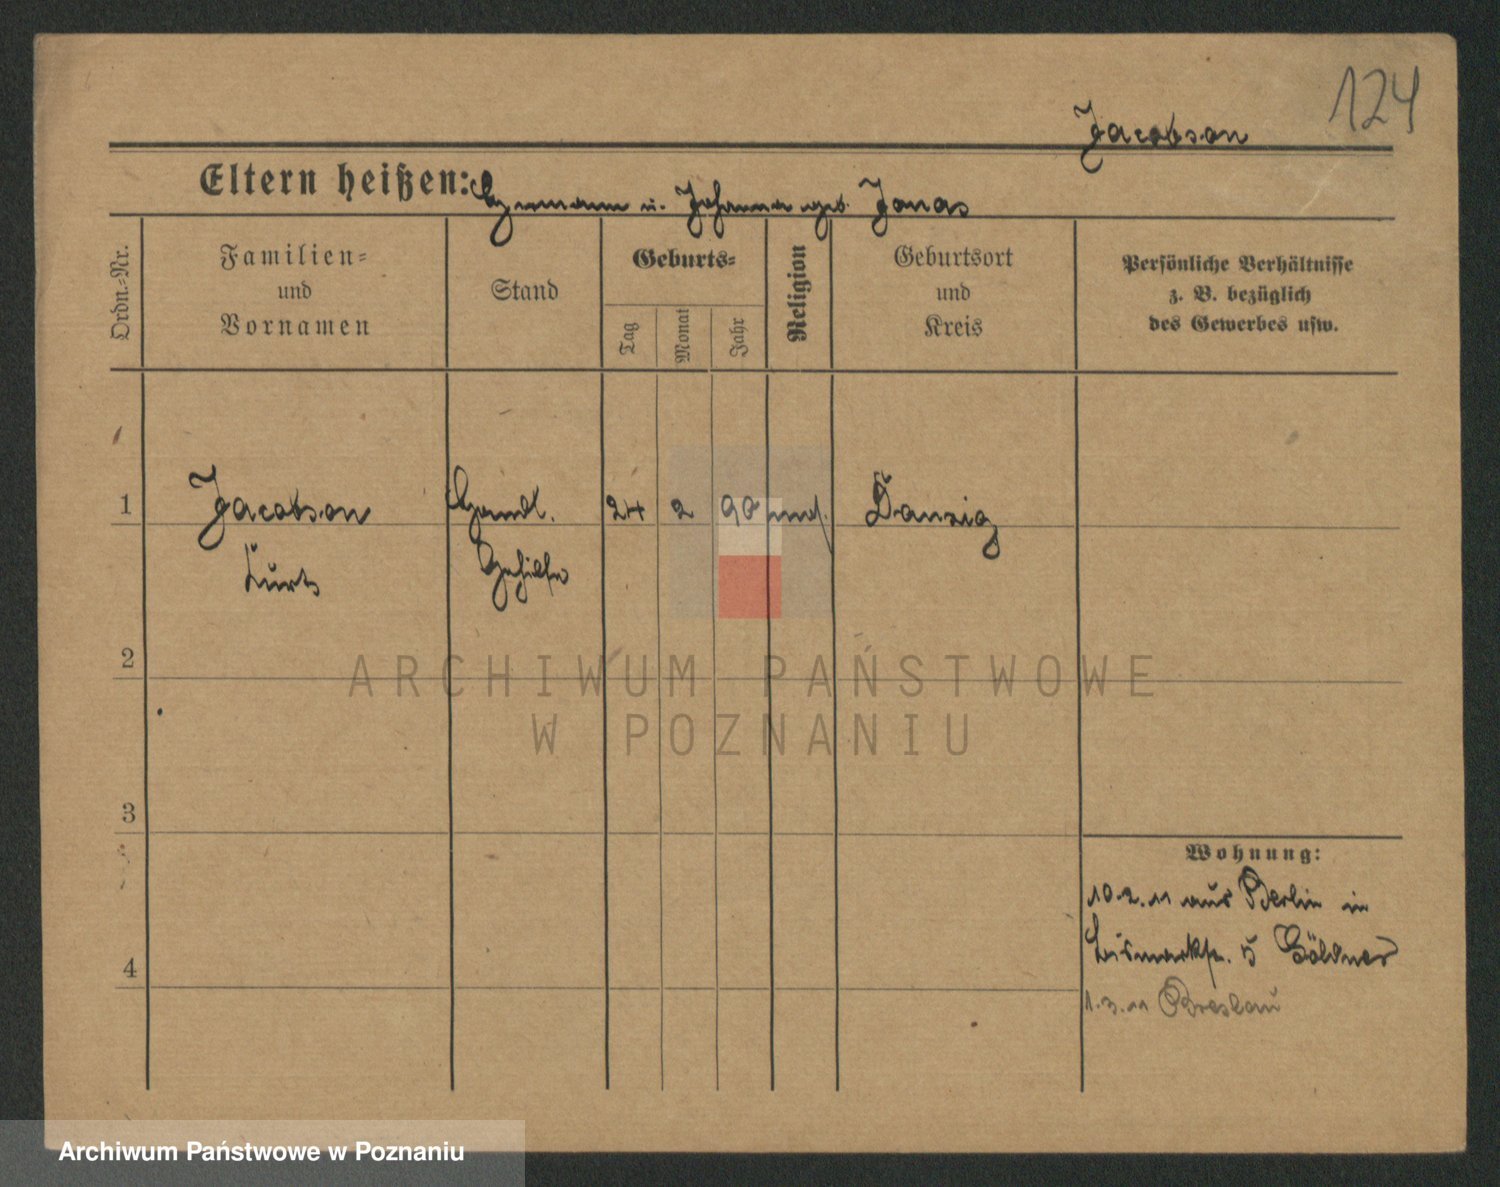 124
Jacobson
Eltern heißen: Hermann u. Johanna geb. Jonas
Ordn.-Nr.
Familien-
und
Vornamen
Stand
Geburts-
Tag
Monat
Jahr
Religion
Geburtsort
und
Kreis
Persönliche Verhältnisse
z. B. bezüglich
des Gewerbes usw.
1 Jacobson Handl. 24 2 90 mos. Danzig
Kurt Gehilfe
2
3
4
ARCHIWUM PAŃSTWOWE
W POZNANIU
Wohnung:
10.2.11 aus Berlin in
Bismarkstr. 5
1.3.11 Breslau
Archiwum Państwowe w Poznaniu